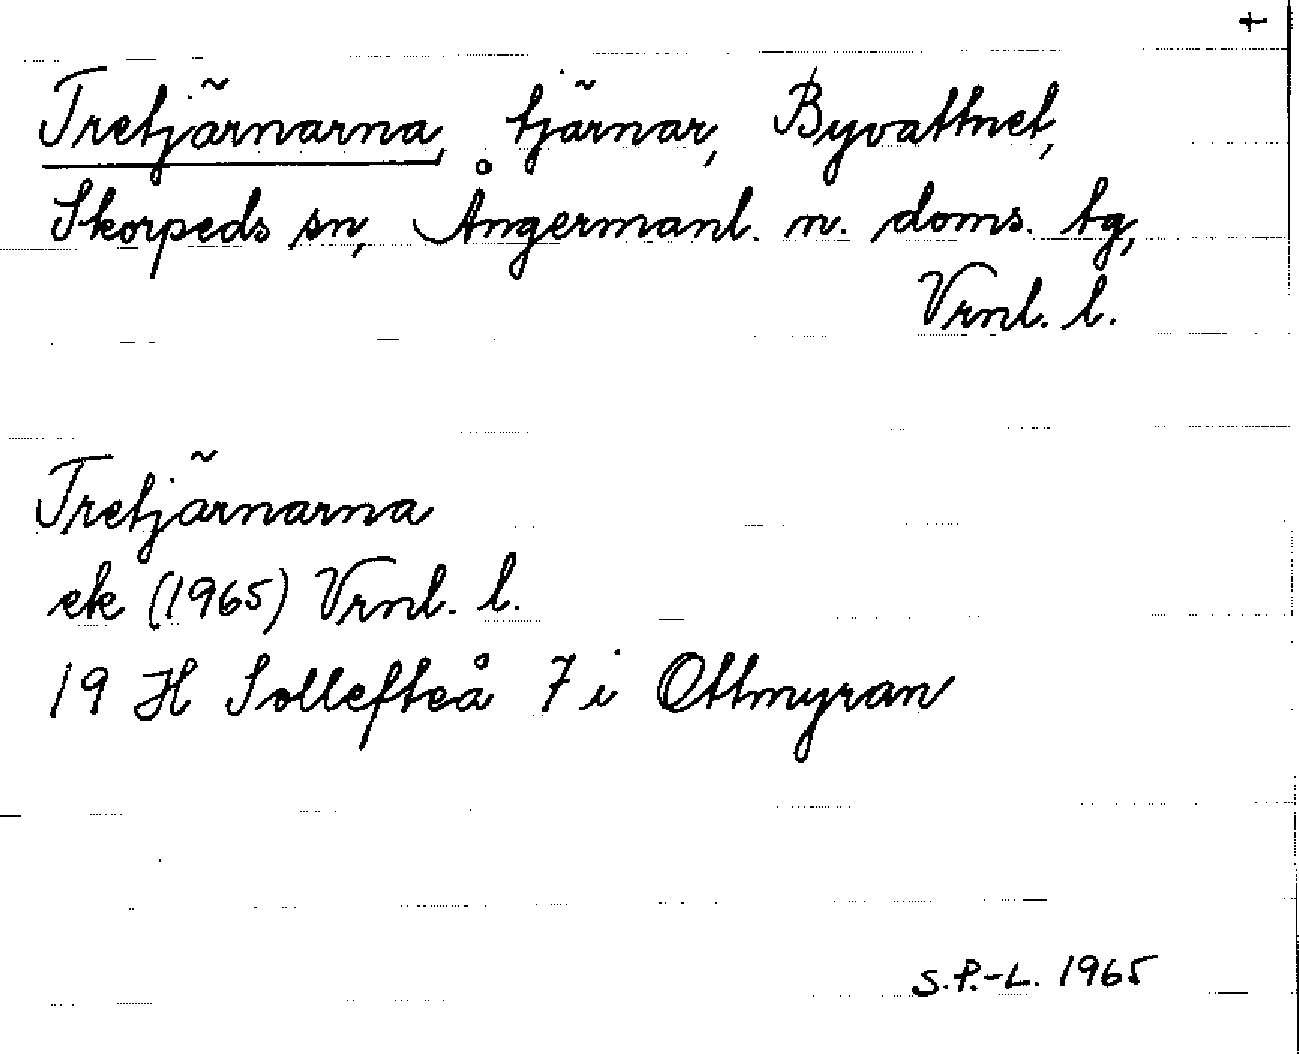 +
Tretjärnarna, tjärnar, Byvattnet,
Skorpeds sn, Ångermanl. n. doms. tg,
Vrnl. l.
Tretjärnarna
ek (1965) Vrnl. l.
19 H Sollefteå 7 i Ottmyran
S.P.-L. 1965